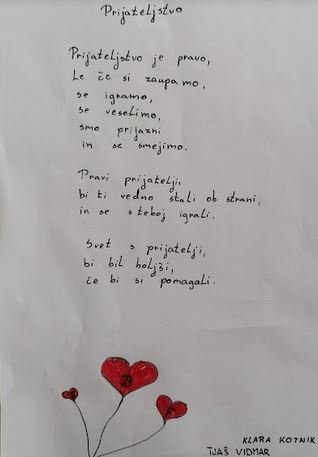 Prijateljstvo
Prijateljstvo je pravo,
Le če si zaupamo,
se igramo,
se veselimo,
smo prijazni
in se smejimo.
Pravi prijatelji
bi ti vedno stali ob strani,
in se s teboj igrali.
Svet s prijatelji,
bi bil boljši,
če bi si pomagali.
KLARA KOTNIK
TJAŠ VIDMAR